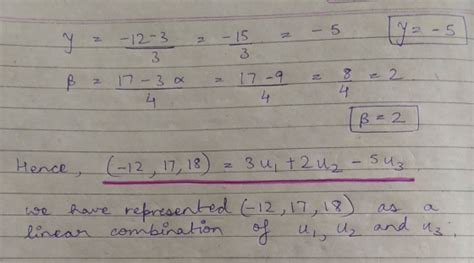 y = -12-3/3 = -15/3 = -5 y = -5
β = 17-3α/4 = 17-9/4 = 8/4 = 2
β = 2
Hence, (-12, 17, 18) = 3u₁ + 2u₂ - 5u₃
we have represented (-12, 17, 18) as a
linear combination of u₁, u₂ and u₃.